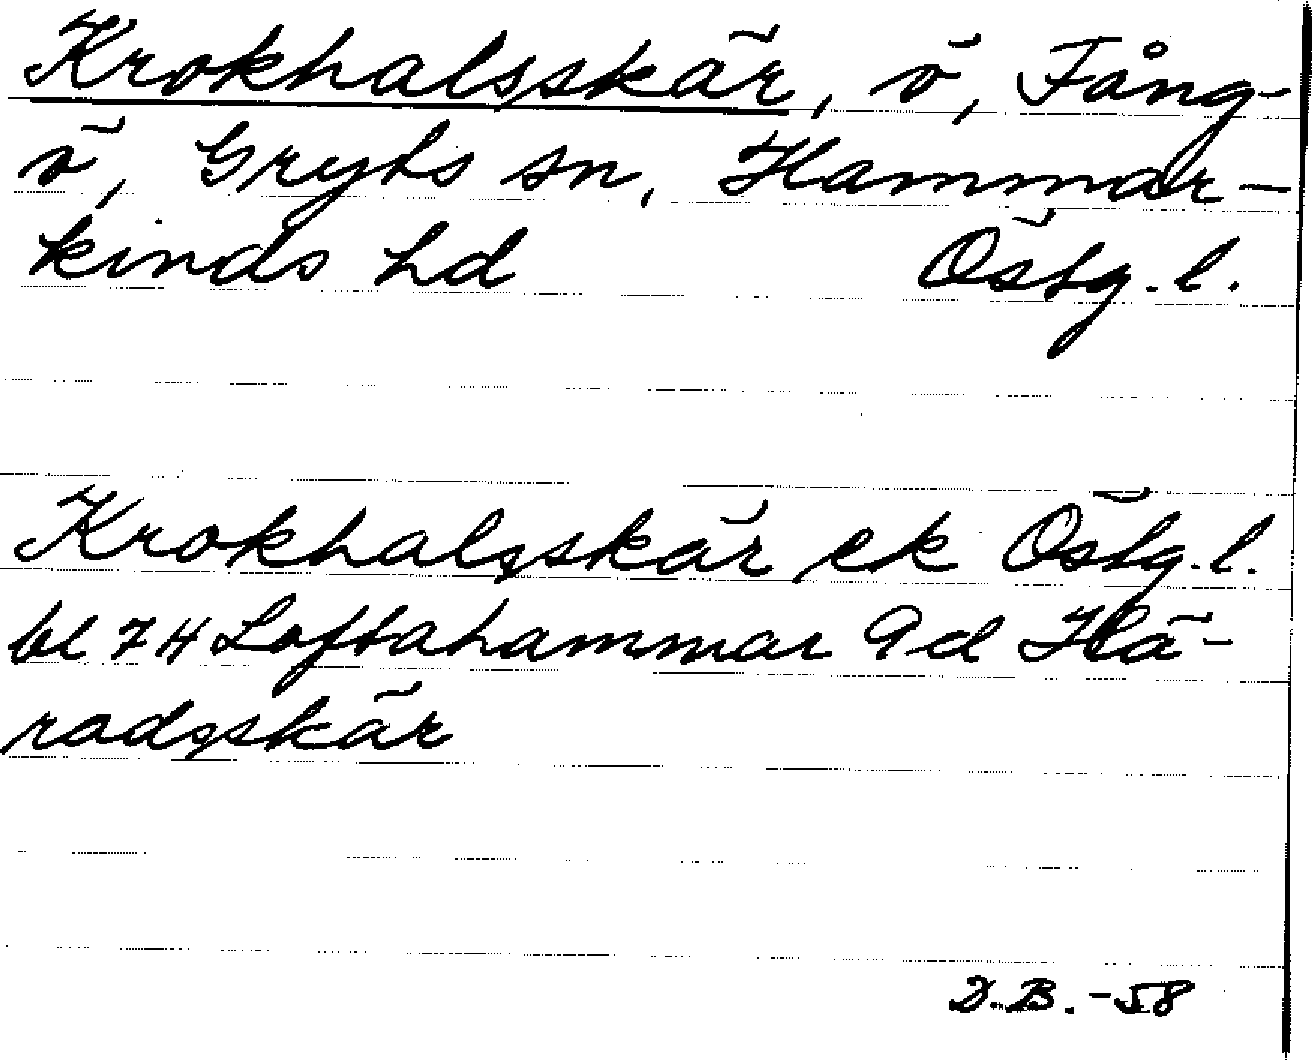 Krokhalsskär, ö, Fång-
ö, Gryts sn, Hammar-
kinds hd Östg. l.
Krokhalsskär ek Östg. l.
bl 74 Loftahammar 9d Hä-
radsskär
D.B. -58